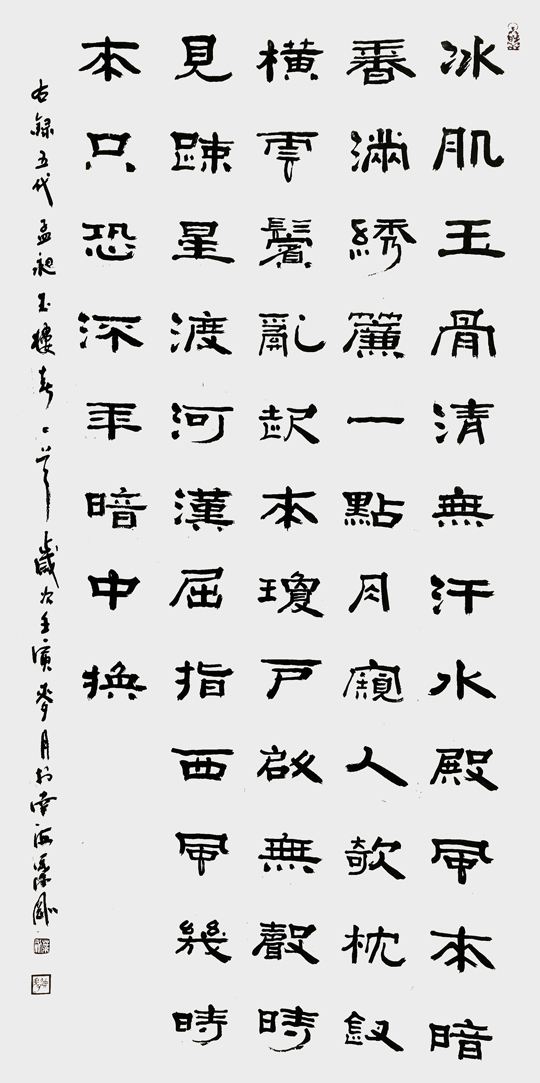 冰肌玉骨清無汗水殿風来暗
香滿綉簾一點月窺人欹枕釵
橫雲鬢亂起来瓊戶啟無聲時
見踈星渡河漢屈指西風幾時
来只恐流年暗中換
右録五代孟昶玉樓春一首歲次壬寅麥月於南海